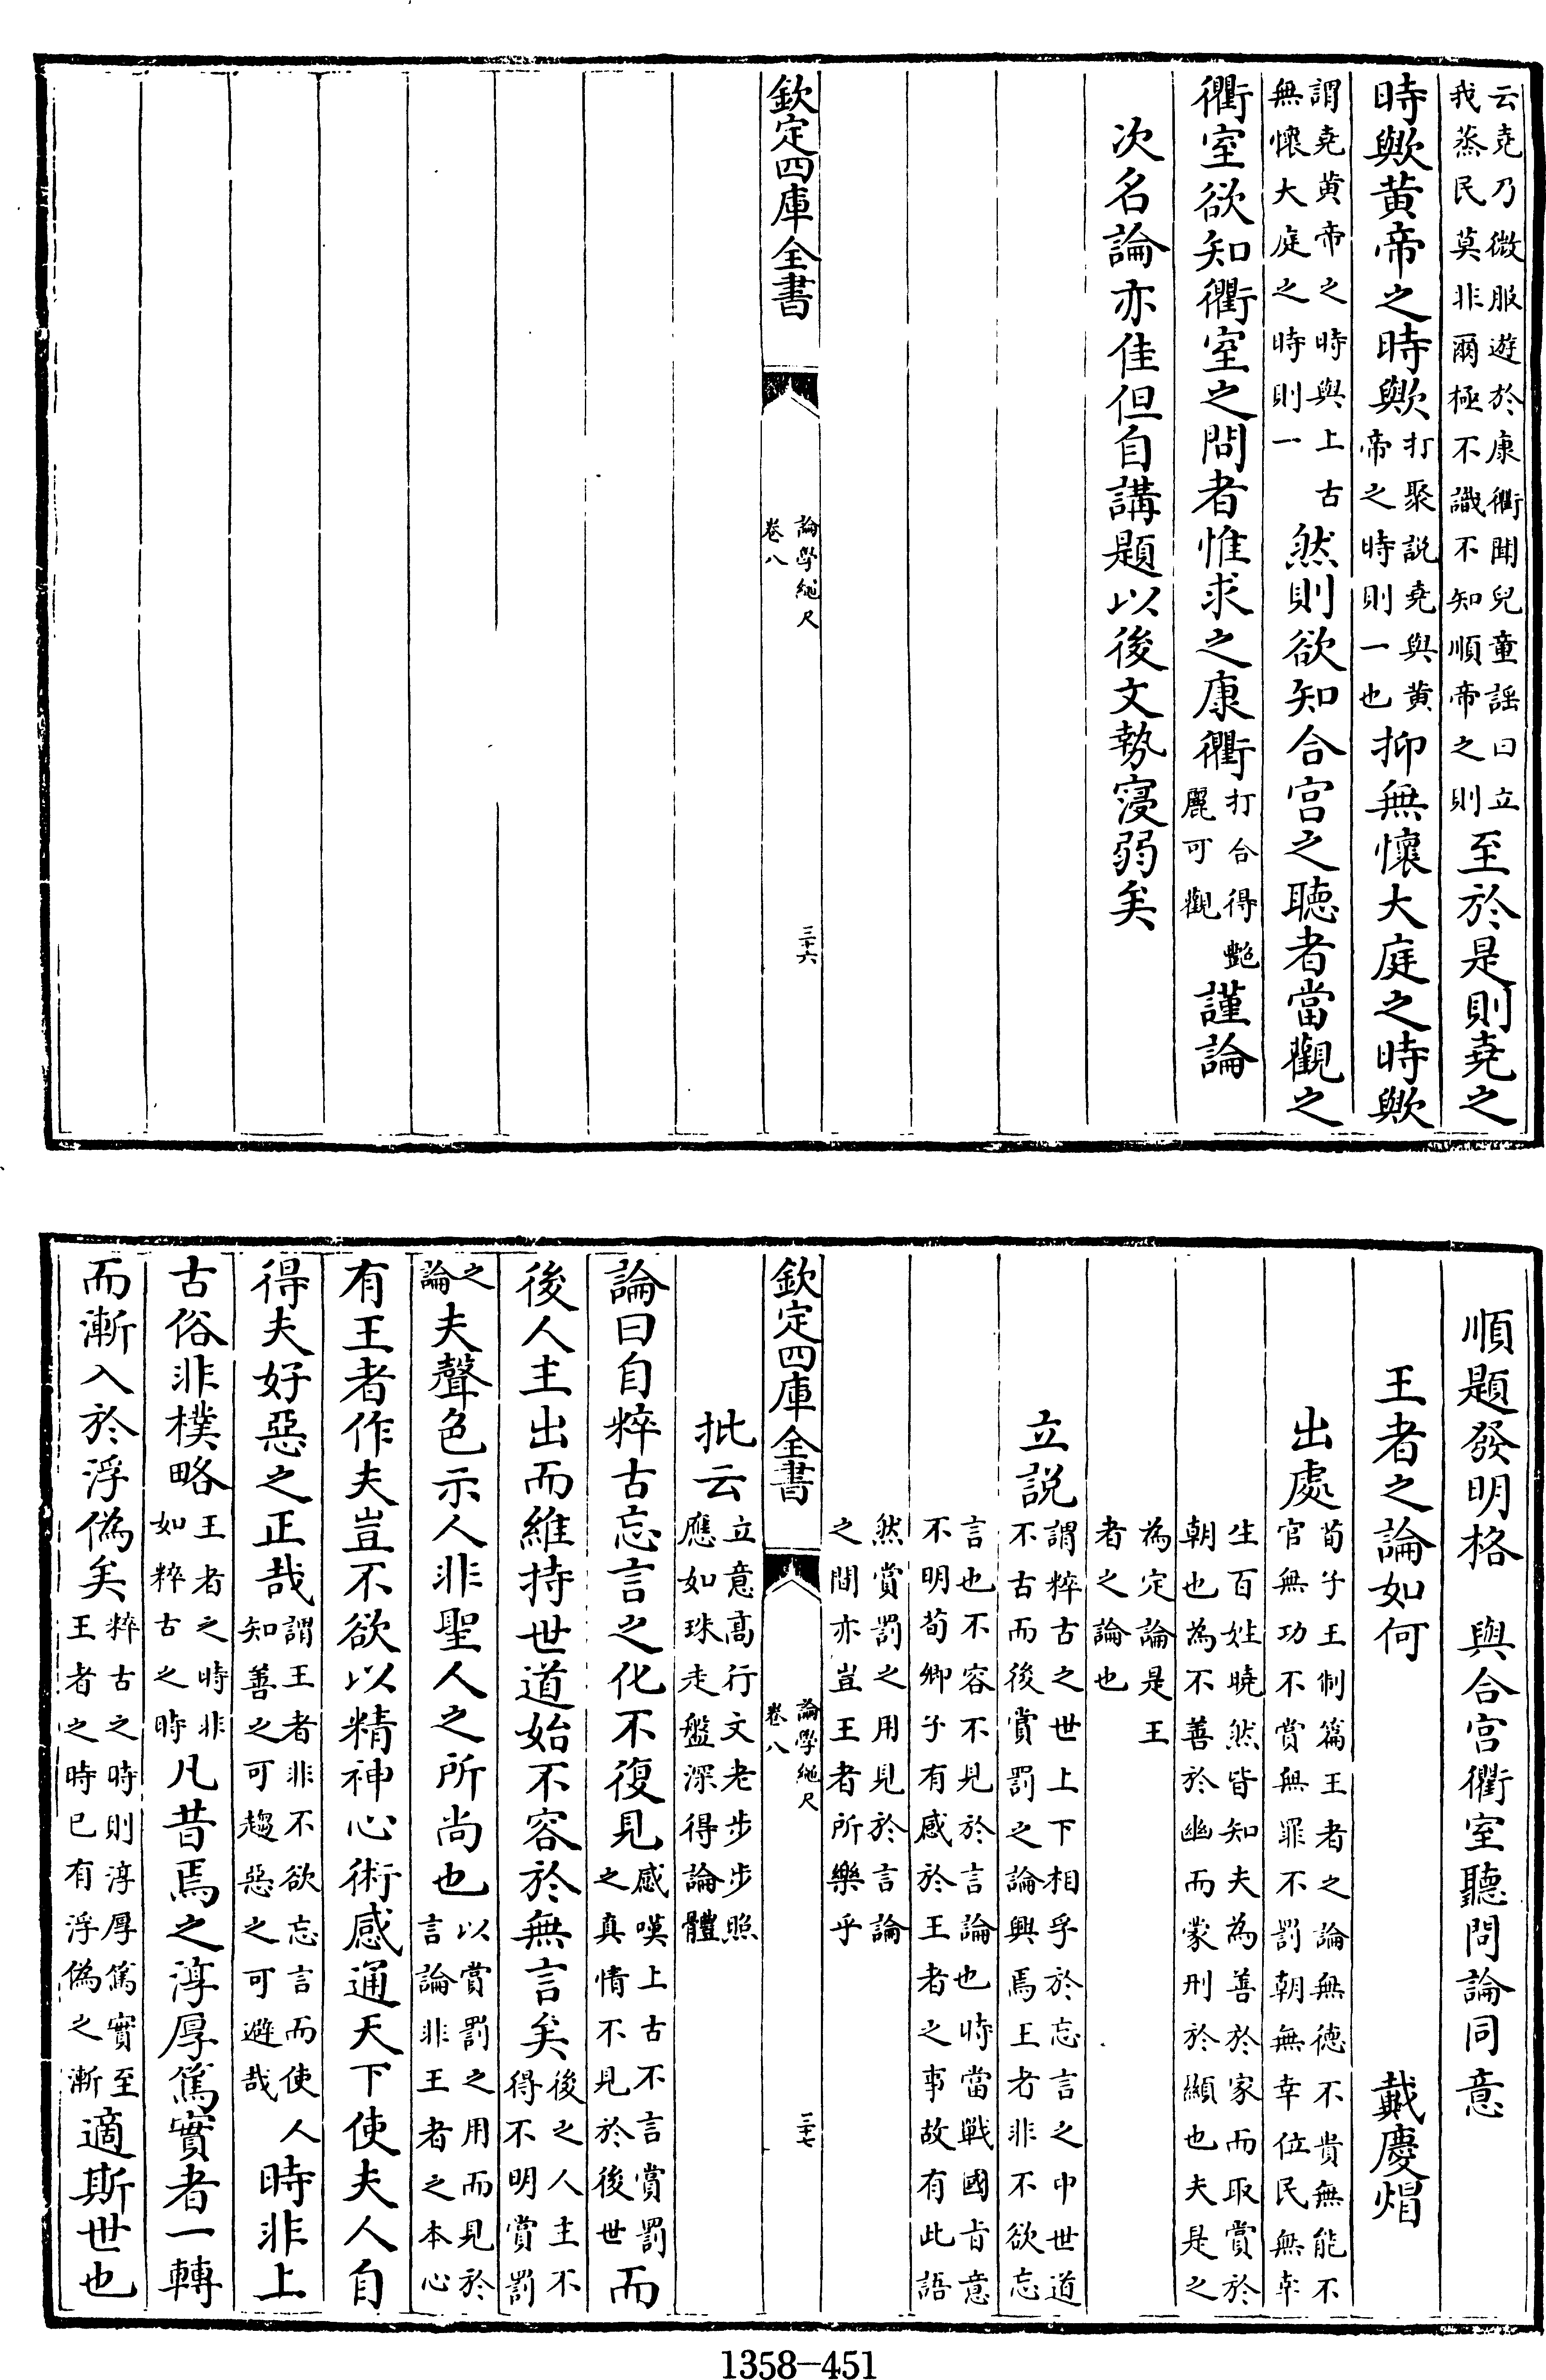 云堯乃微服遊於康衢聞兒童謡曰立
我蒸民莫非爾極不識不知順帝之則
至於是則堯之
時歟黄帝之時歟
打聚説堯與黄
帝之時則一也
抑無懷大庭之時歟
謂堯黄帝之時時與上古
無懷大庭之時則一
然則欲知合宫之聴者當觀之
衢室欲知衢室之問者惟求之康衢
打合得艶
麗可觀
謹論
次名論亦佳但自講題以後文勢寖弱矣
欽定四庫全書
論學繩尺
卷八
三十六
順題發明格 與合宫衢室聽問論同意
王者之論如何 戴慶熠
出處
荀子王制篇王者之論無德不貴無能不
官無功不賞無罪不罰朝無幸位民無幸
生百姓曉然皆知夫為善於家而取賞於
朝也為不善於幽而蒙刑於顯也夫是之
為定論是王
者之論也
立説
謂粹古之世上下相孚於忘言之中世道
不古而後賞罰之論興焉王者非不欲忘
言也不容不見於言論也時當戰國旨意
不明荀卿子有感於王者之事故有此語
然賞罰之用見於言論
之間亦豈王者所樂乎
批云
立意高行文老步步照
應如珠走盤深得論體
欽定四庫全書
論學繩尺
卷八
三十七
論曰自粹古忘言之化不復見
感嘆上古不言賞罰
之真情不見於後世
而
後人主出而維持世道始不容於無言矣
後之人主不
得不明賞罰
之
論
夫聲色示人非聖人之所尚也
以賞罰之用而見於
言論非王者之本心
有王者作夫豈不欲以精神心術感通天下使夫人自
得夫好惡之正哉
謂王者非不欲忘言而使人
知善之可趨惡之可避哉
時非上
古俗非樸略
王者之時非
如粹古之時
凡昔焉之淳厚篤實者一轉
而漸入於浮偽矣
粹古之時則淳厚篤實至
王者之時已有浮偽之漸
適斯世也
1358-451